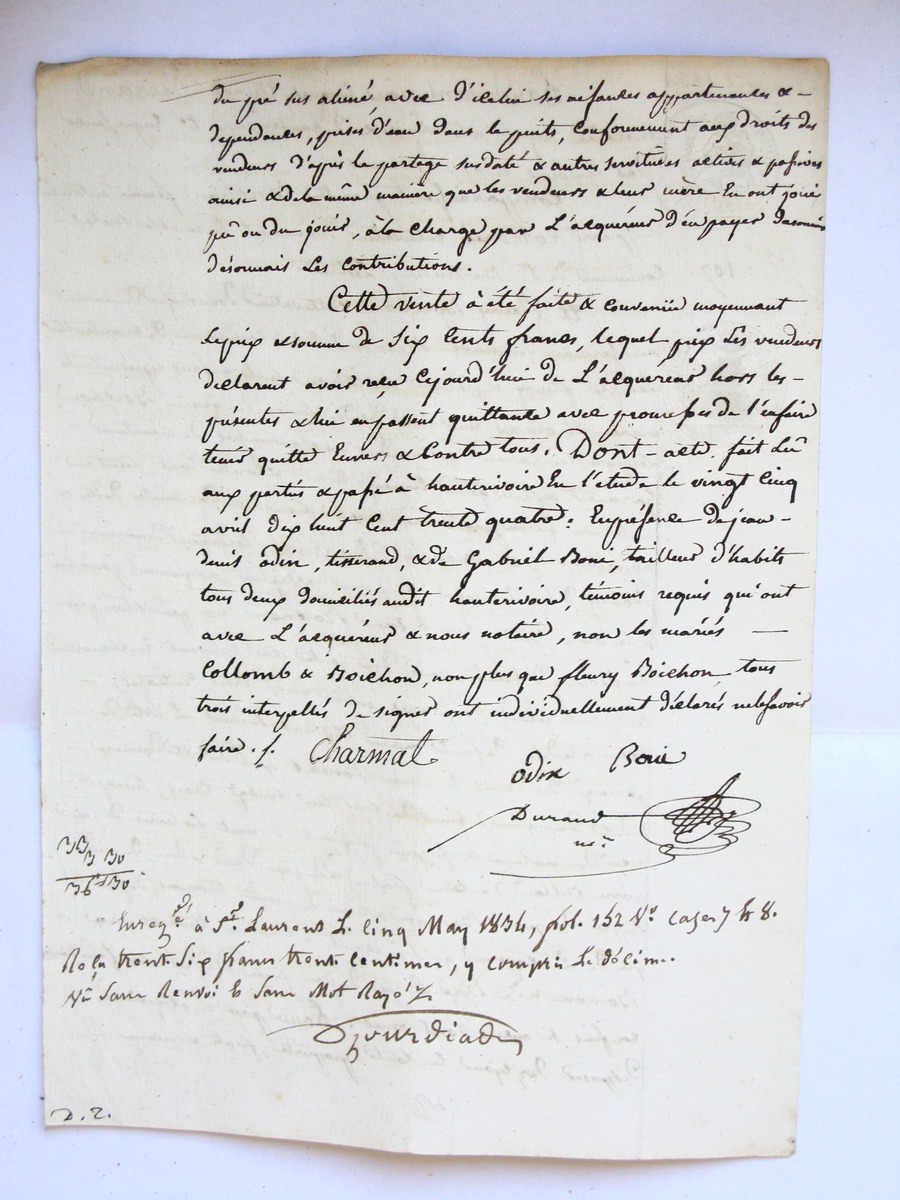 du pré sus aliéné avec d'icelui ses aisances appartenances & -
dependances, prises d'eau dans le puits, Conformement aux droits des
vendeurs d'après le partage susdaté & autres servitudes actives & passives
ainsi & de la même manière que les vendeurs & leur mère En ont joui
pû ou du jouir, à la Charge par L'acquéreur d'en payer
désormais Les Contributions.
Cette vente à été faite & Convenue moyennant
Le prix & somme de Six Cents francs, lequel prix Les vendeurs
déclarent avoir reçu Cejourd'hui de L'acquéreur hors les -
présentes & lui en passent quittance avec promesses de l'en faire
tenir quitte Envers & Contre tous. Dont - acte. fait Lû
aux parties & passé à hauterivoire En l'étude le vingt Cinq
avril dix huit Cent trente quatre: En présence de jean -
denis odin, tisserand, & de Gabriel Boui, tailleur d'habits
tous deux domiciliés audit hauterivoire, témoins requis qui ont
avec L'acquéreur & nous notaire, non les mariés —
Collomb & Boichon, non plus que fleury Boichon, tous
trois interpellés de signer ont individuellement déclarés ne le savoir
faire ./. Charmat
odin Boui
Durand
nre
33
3 30
36f 30
Enregé à St. Laurent Le Cinq May 1834, fol. 152 Vo. Cases 7 & 8.
Reçu trente Six francs trente Centimes, y Compris Le décime.
Sans Renvoi & Sans Mot Rayé
D. 2.